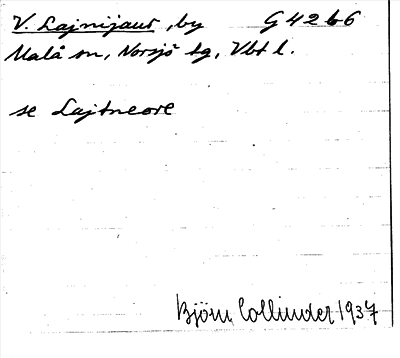 V. Lajnijaur, by G 42 b6
Malå sn, Norsjö tg, Vbt l.
se Lajtneore
Björn Collinder 1937